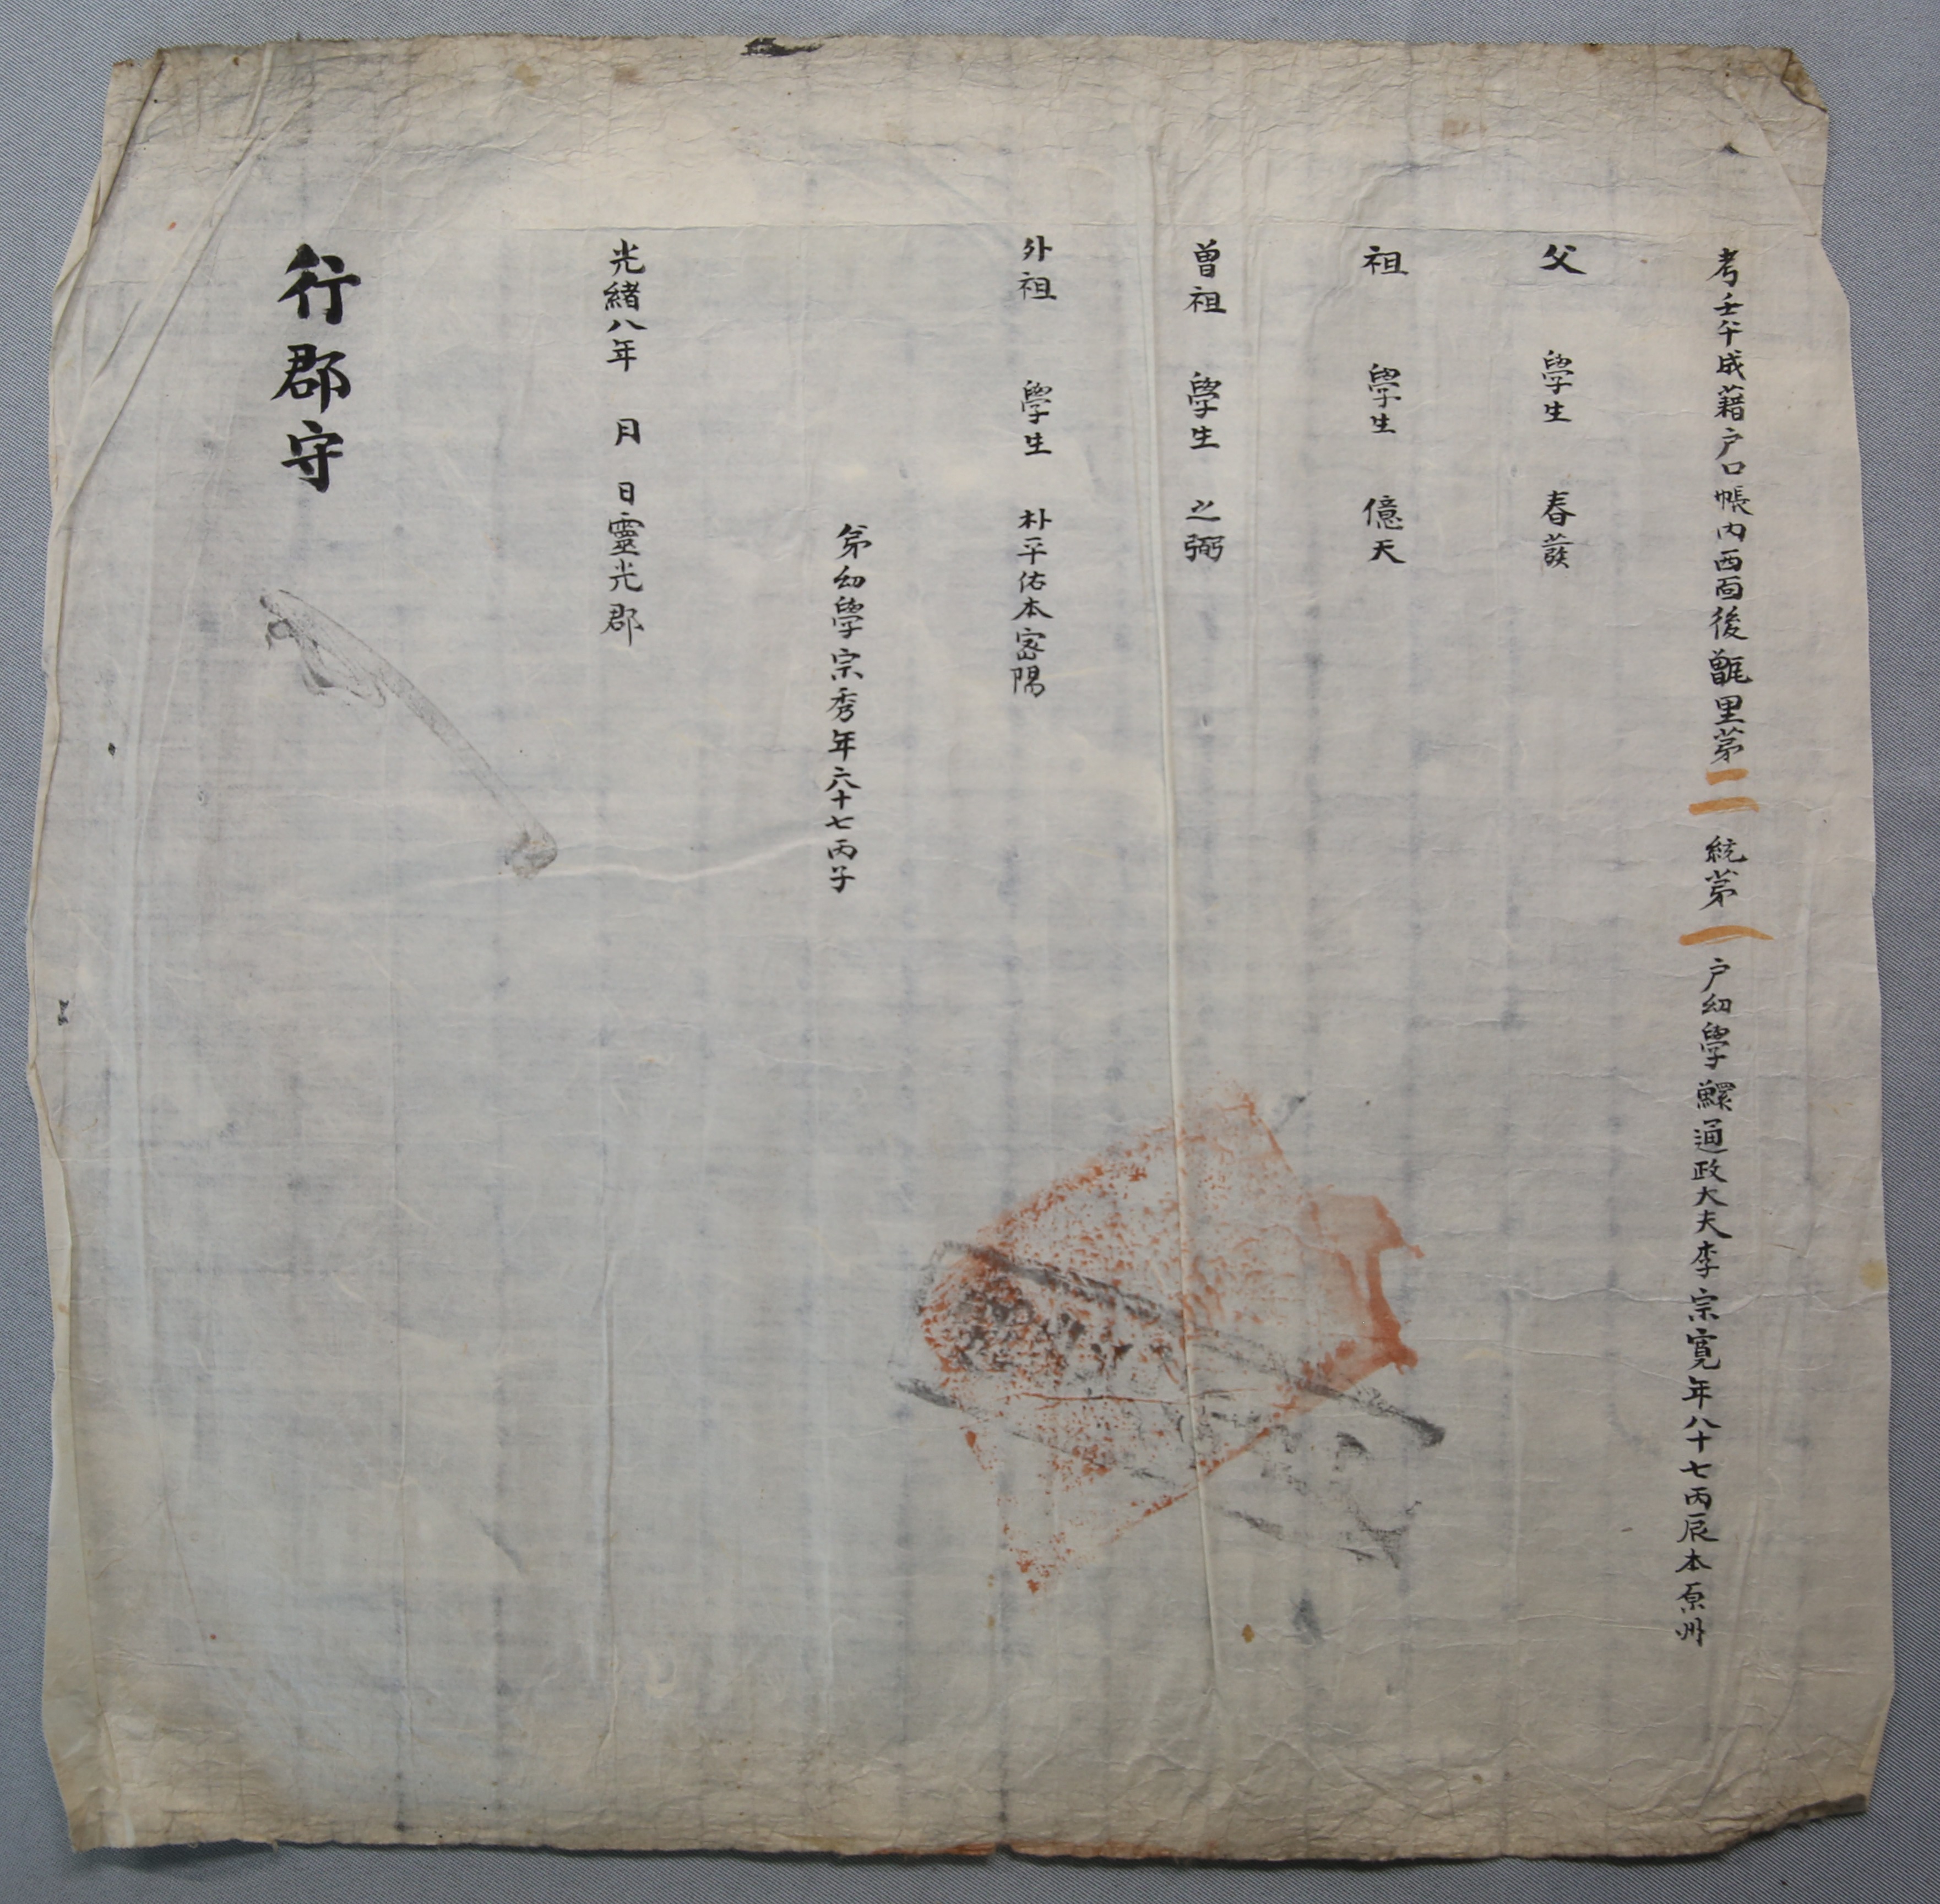 考壬午成籍户口帳內西面後甑里苐二統苐一户幼學鰥通政大夫李宗寬年八十七丙辰本原州
父 學生 春發
祖 學生 億天
曾祖 學生 之弼
外祖 學生 朴平佑本密陽
苐幼學宗秀年六十七丙子
光緖八年 月 日靈光郡
行郡守